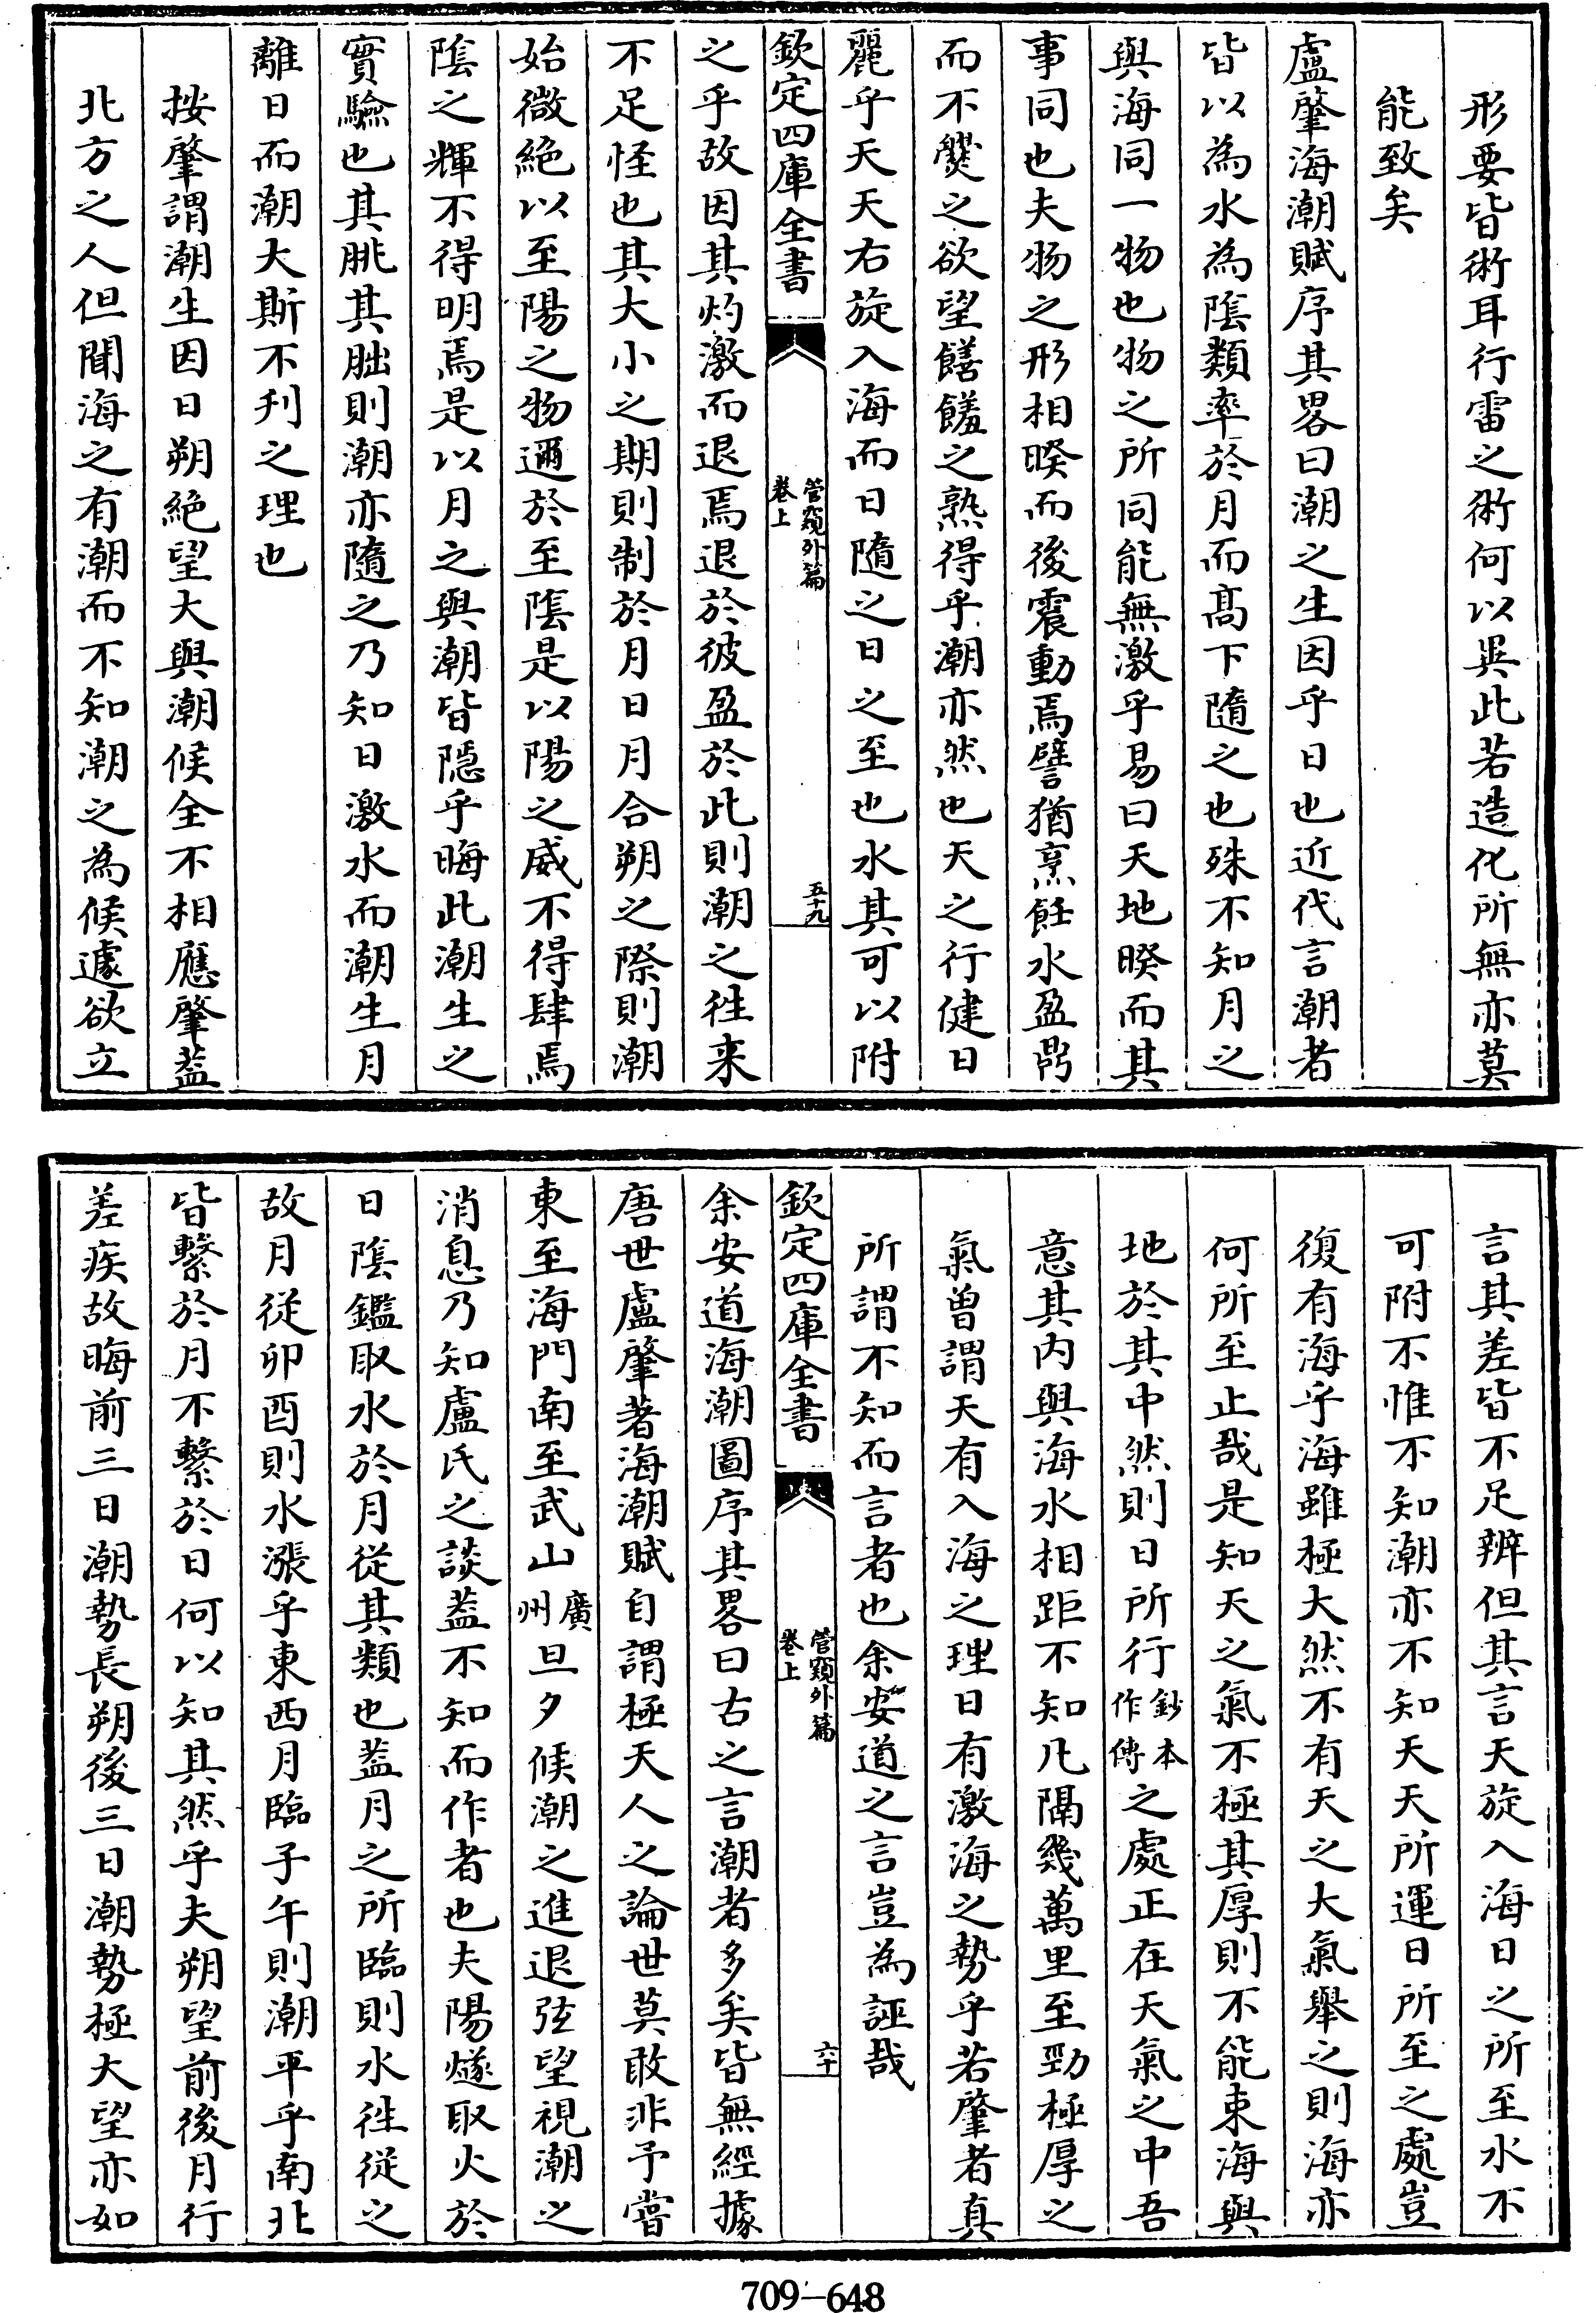 形要皆術耳行雷之術何以異此若造化所無亦莫
能致矣
盧肇海潮賦序其畧曰潮之生因乎日也近代言潮者
皆以為水為陰類率於月而髙下隨之也殊不知月之
與海同一物也物之所同能無激乎易曰天地暌而其
事同也夫物之形相暌而後震動焉譬猶烹飪水盈鼎
而不爨之欲望饍饈之熟得乎潮亦然也天之行健日
麗乎天天右旋入海而日隨之日之至也水其可以附
欽定四庫全書
管窺外篇
卷上
五十九
之乎故因其灼激而退焉退於彼盈於此則潮之徃来
不足怪也其大小之期則制於月日月合朔之際則潮
始微絶以至陽之物邇於至陰是以陽之威不得肆焉
陰之輝不得明焉是以月之與潮皆隱乎晦此潮生之
實驗也其朓其朏則潮亦隨之乃知日激水而潮生月
離日而潮大斯不刋之理也
按肇謂潮生因日朔絶望大與潮候全不相應肇葢
北方之人但聞海之有潮而不知潮之為候遽欲立
言其差皆不足辨但其言天旋入海日之所至水不
可附不惟不知潮亦不知天天所運日所至之處豈
復有海乎海雖極大然不有天之大氣舉之則海亦
何所至止哉是知天之氣不極其厚則不能束海與
地於其中然則日所行鈔本作傳之處正在天氣之中吾
意其内與海水相距不知凡隔幾萬里至勁極厚之
氣曾謂天有入海之理日有激海之勢乎若肇者真
所謂不知而言者也余安道之言豈為誣哉
欽定四庫全書
管窺外篇
卷上
六十
余安道海潮圖序其畧曰古之言潮者多矣皆無經據
唐世盧肇著海潮賦自謂極天人之論世莫敢非予嘗
東至海門南至武山廣州旦夕候潮之進退弦望視潮之
消息乃知盧氏之談葢不知而作者也夫陽燧取火於
日陰鑑取水於月從其類也葢月之所臨則水徃從之
故月從卯酉則水漲乎東西月臨子午則潮平乎南北
皆繫於月不繫於日何以知其然乎夫朔望前後月行
差疾故晦前三日潮勢長朔後三日潮勢極大望亦如
709-648